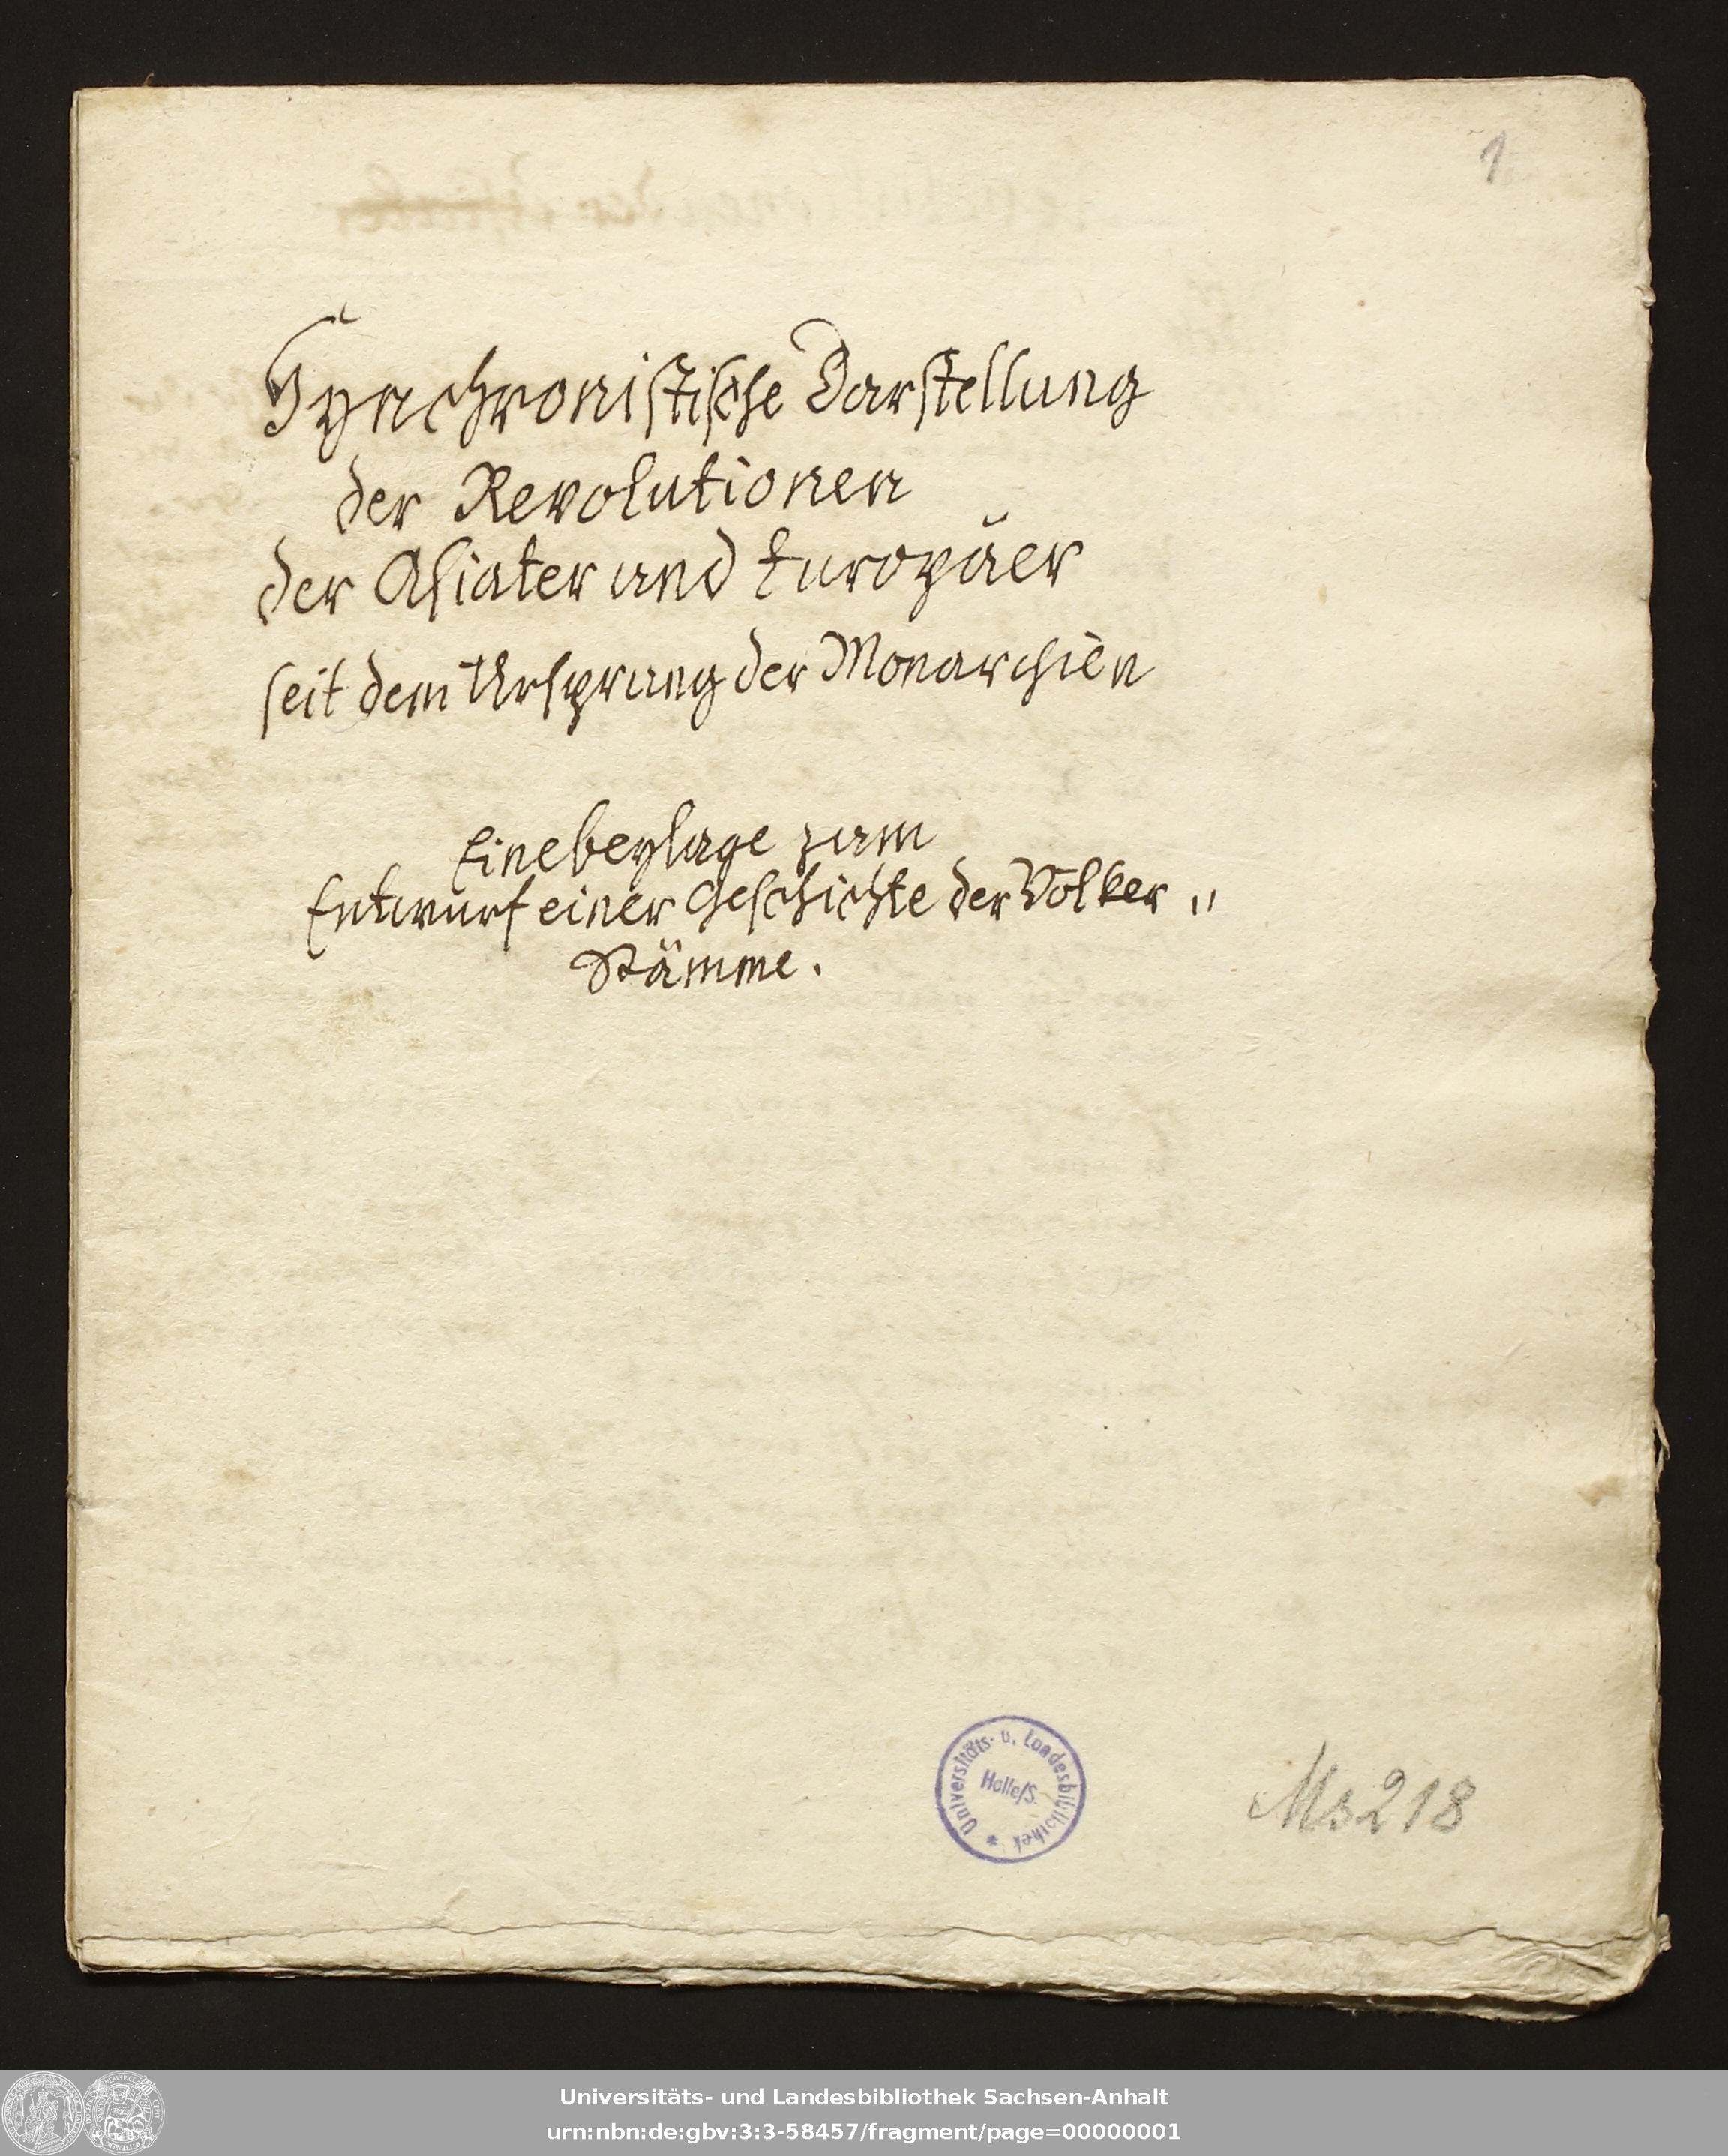 1
Synchronistische Darstellung
der Revolutionen
der Asiater und Europäer
seit dem Ursprung der Monarchien
Eine beylage zum
Entwurf einer Geschichte der Völker "
Stämme.
Universitäts- u. Landesbibliothek *
Halle/S.
Ms 218
Universitäts- und Landesbibliothek Sachsen-Anhalt
urn:nbn:de:gbv:3:3-58457/fragment/page=00000001